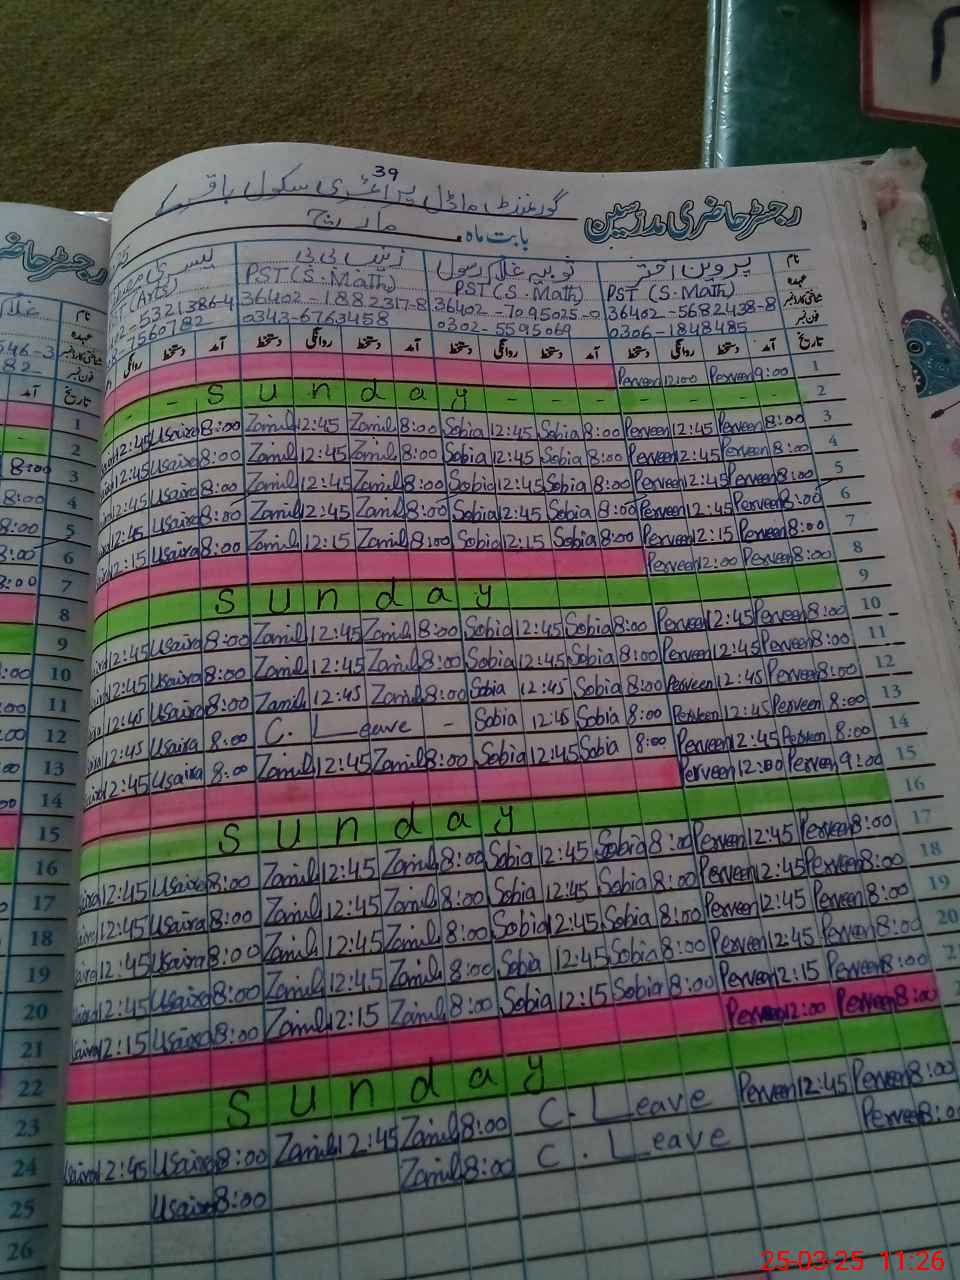 39
گورنمنٹ ماڈل پرائمری سکول باقر کے
رجسٹر حاضری مدرسین
بابت ماہ مارچ
نام پروین اختر ثوبیہ غلام رسول زینب بی بی
عہدہ PST (S.Math) PST (S.Math) PST (S.Math) (Arts)
شناختی کارڈ نمبر 36402-5682438-8 36402-7095025-0 36402-1882317-8 02-5321386-4
فون نمبر 0306-1848485 0302-5595069 0343-6763458 7560782
آمد دستخط روانگی دستخط آمد دستخط روانگی دستخط آمد دستخط روانگی دستخط آمد دستخط روانگی
Perveen 12:00 Perveen 9:00 1
- - Sunday - - - - - - - 2
12:45 Usaira 8:00 Zainib 12:45 Zainib 8:00 Sobia 12:45 Sobia 8:00 Perveen 12:45 Perveen 8:00 3
12:45 Usaira 8:00 Zainib 12:45 Zainib 8:00 Sobia 12:45 Sobia 8:00 Perveen 12:45 Perveen 8:00 4
12:45 Usaira 8:00 Zainib 12:45 Zainib 8:00 Sobia 12:45 Sobia 8:00 Perveen 12:45 Perveen 8:00 5
12:45 Usaira 8:00 Zainib 12:45 Zainib 8:00 Sobia 12:45 Sobia 8:00 Perveen 12:45 Perveen 8:00 6
12:15 Usaira 8:00 Zainib 12:15 Zainib 8:00 Sobia 12:15 Sobia 8:00 Perveen 12:15 Perveen 8:00 7
Perveen 12:00 Perveen 8:00 8
Sunday 9
12:45 Usaira 8:00 Zainib 12:45 Zainib 8:00 Sobia 12:45 Sobia 8:00 Perveen 12:45 Perveen 8:00 10
12:45 Usaira 8:00 Zainib 12:45 Zainib 8:00 Sobia 12:45 Sobia 8:00 Perveen 12:45 Perveen 8:00 11
12:45 Usaira 8:00 Zainib 12:45 Zainib 8:00 Sobia 12:45 Sobia 8:00 Perveen 12:45 Perveen 8:00 12
12:45 Usaira 8:00 C. Leave - Sobia 12:45 Sobia 8:00 Perveen 12:45 Perveen 8:00 13
12:45 Usaira 8:00 Zainib 12:45 Zainib 8:00 Sobia 12:45 Sobia 8:00 Perveen 12:45 Perveen 8:00 14
Perveen 12:00 Perveen 9:00 15
Sunday 16
12:45 Usaira 8:00 Zainib 12:45 Zainib 8:00 Sobia 12:45 Sobia 8:00 Perveen 12:45 Perveen 8:00 17
12:45 Usaira 8:00 Zainib 12:45 Zainib 8:00 Sobia 12:45 Sobia 8:00 Perveen 12:45 Perveen 8:00 18
12:45 Usaira 8:00 Zainib 12:45 Zainib 8:00 Sobia 12:45 Sobia 8:00 Perveen 12:45 Perveen 8:00 19
12:45 Usaira 8:00 Zainib 12:45 Zainib 8:00 Sobia 12:45 Sobia 8:00 Perveen 12:45 Perveen 8:00 20
12:15 Usaira 8:00 Zainib 12:15 Zainib 8:00 Sobia 12:15 Sobia 8:00 Perveen 12:15 Perveen 8:00
Perveen 12:00 Perveen 8:00
Sunday
12:45 Usaira 8:00 Zainib 12:45 Zainib 8:00 C. Leave Perveen 12:45 Perveen 8:00
Usaira 8:00 Zainib 8:00 C. Leave Perveen 8:00
رجسٹر حاضری
نام
عہدہ
شناختی کارڈ نمبر
فون نمبر
تاریخ آمد
1
2
3 8:00
4 8:00
5 8:00
6 8:00
7 8:00
8
9
10
11
12
13
14
15
16
17
18
19
20
21
22
23
24
25
26
25-03-25 11:26